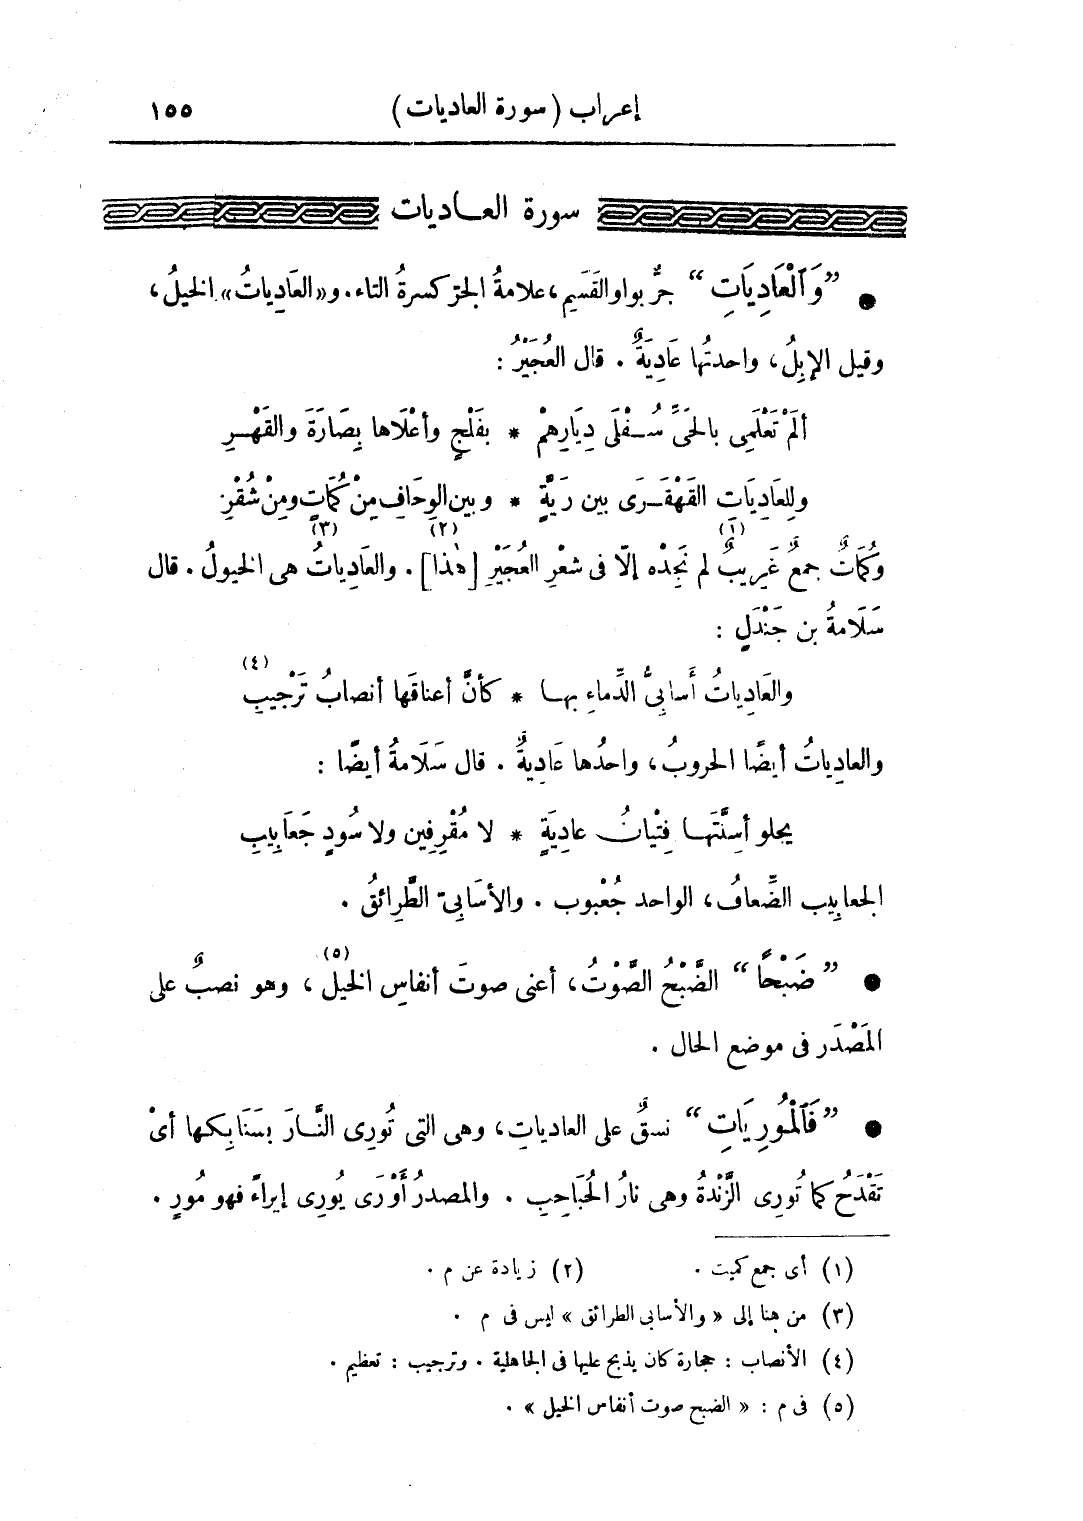 إعراب (سورة العاديات) ١٥٥
سورة العــاديات
● ”وَٱلْعَادِيَاتِ“ جرٌّ بواو القَسَمِ، علامةُ الجرّ كسرةُ التاء. و«العَادِياتُ» الخيلُ،
وقيل الإبِلُ، واحدتُها عَادِيَةٌ. قال العُجَيْرُ:
ألَمْ تَعْلَمِى بالحَىِّ سُـفْلَى دِيَارِهِمْ * بفَلْجٍ وأعْلَاها بِصَارَةَ والقَهْـرِ
ولِلعَادِيَاتِ القَهْقَـرَى بين رَيَّةٍ * وبين الوِحَافِ مِنْ كُمَاتٍ ومِنْ شُقْرِ
وكُمَاتٌ (١) جمعٌ غَرِيبٌ لم نَجِدْه إلّا فى شعْرِ العُجَيْرِ (٢) [هٰذا] (٣). والعَادِياتُ هى الخيولُ. قال
سَلَامةُ بن جَنْدَلٍ:
والعَادِياتُ أَسَابِىُّ الدِّماءِ بهـا * كأنَّ أعناقَها أنصابُ تَرْجِيبِ (٤)
والعادِياتُ أيضًا الحروبُ، واحدُها عَادِيةٌ. قال سَلَامةُ أيضًا:
يجلو أسِنَّتَهـا فِتْيانُ عادِيَةٍ * لا مُقْرِفِين ولا سُودٍ جَعَابِيبِ
الجعابِيب الضِّعافُ، الواحد جُعْبوب. والأسَابِىّ الطَّرائقُ.
● ”ضَبْحًا“ الضَّبْحُ الصَّوْتُ، أعنى صوتَ أنفاسِ الخيل (٥)، وهو نصبٌ على
المَصْدَر فى موضع الحال.
● ”فَٱلْمُورِيَاتِ“ نسقٌ على العادياتِ، وهى التى تُورِى النَّـارَ بسَنَابِكها أىْ
تَقْدَحُ كما تُورِى الزَّنْدةُ وهى نارُ الحُبَاحِبِ. والمصدرُ أَوْرَى يُورِى إيراءً فهو مُورٍ.
(١) أى جمع كميت. (٢) زيادة عن م.
(٣) من هنا إلى «والأسابى الطرائق» ليس فى م.
(٤) الأنصاب: حجارة كان يذبح عليها فى الجاهلية. وترجيب: تعظيم.
(٥) فى م: «الضبح صوت أنفاس الخيل».